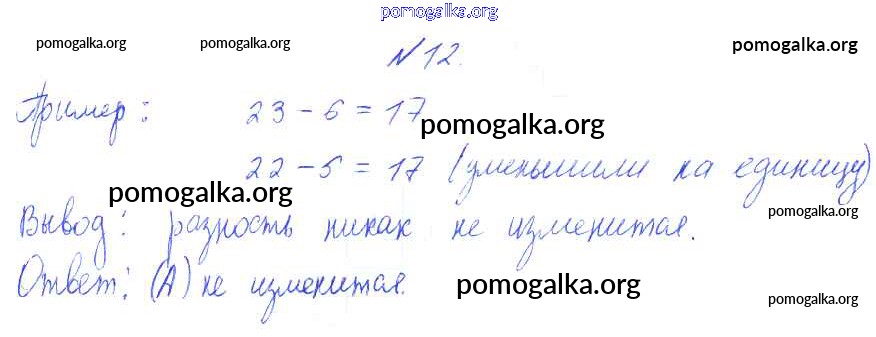 pomogalka.org
pomogalka.org pomogalka.org № 12. pomogalka.org
Пример: 23 - 6 = 17
pomogalka.org
22 - 5 = 17 (уменьшили на единицу)
pomogalka.org
Вывод: разность никак не изменится.
pomogalka.org
Ответ: (А) не изменится.
pomogalka.org
pomogalka.org